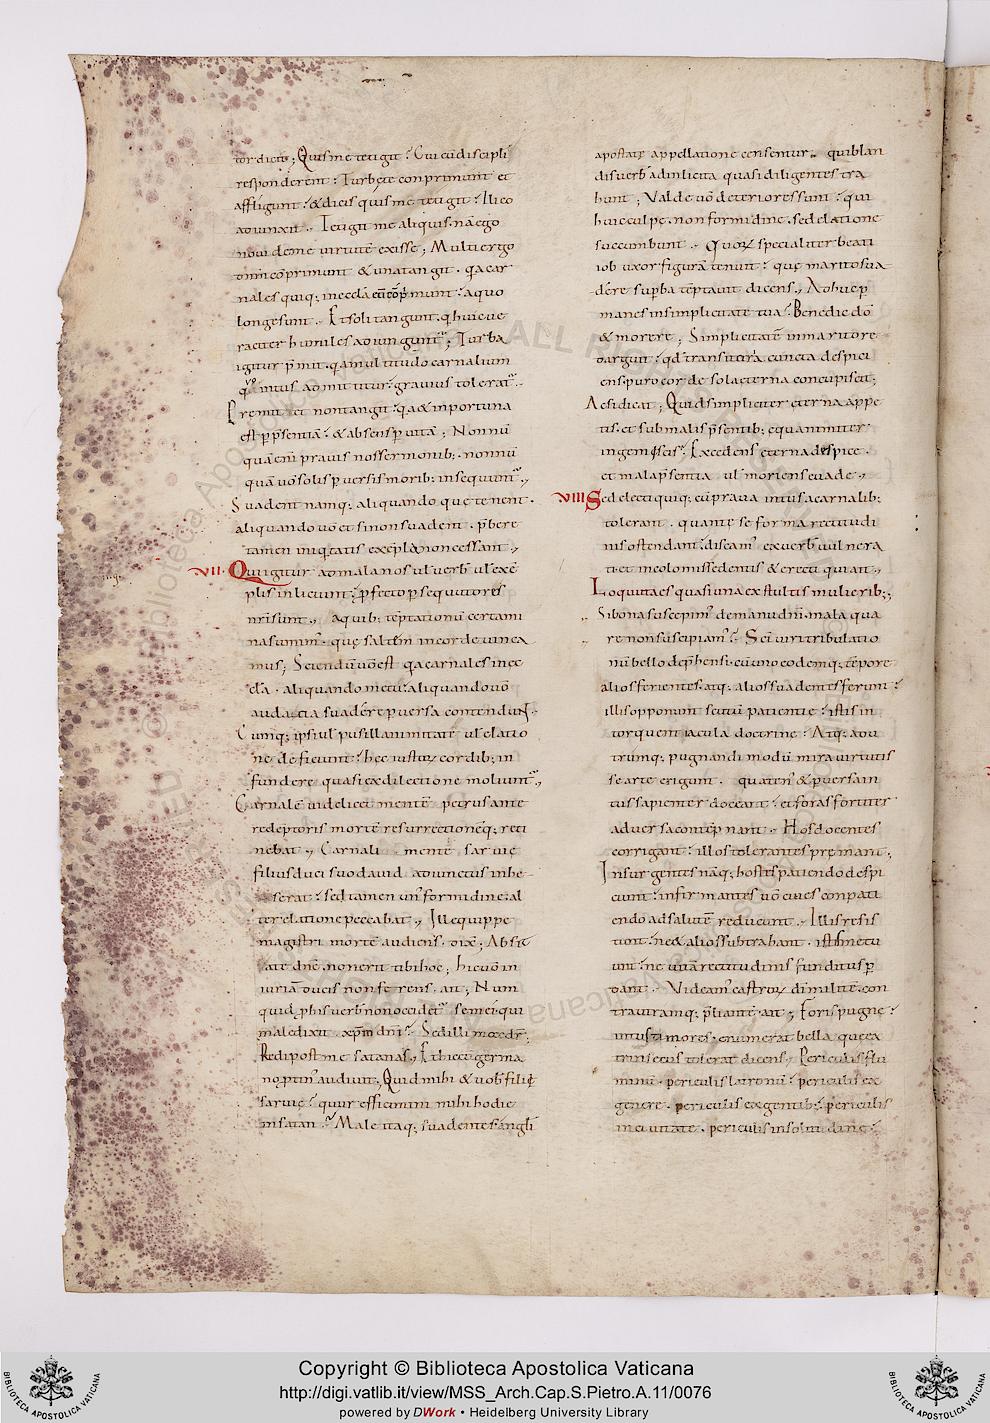 tor dicit; Quis me tetigit? Cui cũ discipli
responderent: Turbę te conprimunt et
affligunt? & dicis quis me tetigit? Ilico
adiunxit. Tetigit me aliquis. nã ego
novi de me virtutẽ exisse; Multi ergo
dnm cõprimunt & una tangit. qa car
nales quiq; in ecclã eũ cõpmunt? a quo
longe sunt. Et soli tangunt. q huic ve
raciter humiles adiungunt; Turba
igitur pmit. qa multitudo carnalium
intus admittitur. gravius tolerat.
Premit et non tangit. qa & inportuna
est p psentiã. & absens p vitã; Non nũ
quã eni pravis nos sermonib; non nũ
quã vo solis pversis morib; insequunt.
Suadent namq; aliquando que tenent.
aliquando vo etsi non suadent. pbere
tamen iniqtatis exẽpla non cessant
VII. Qui igitur ad mala nos ul verb ul exẽ
plis inliciunt. pfecto psequutores
nri sunt. a quib; tẽptationũ certami
na sumim. quę saltẽm in corde vinca
mus; Sciendũ vo est qa carnales in ec
cla. aliquando metu. aliquando vo
audacia suadere pversa contendunt.
Cumq; ipsi ul pusillanimitate ul elatio
ne deficiunt. hec iustor cordib; in
fundere quasi ex dilectione moliunt,
Carnalẽ videlicet mentẽ petrus ante
redẽptoris mortẽ resurrectionẽq; reti
nebat. Carnali mente sarvię
filius duci suo david adiunctus inhe
serat. sed tamen un formidine. al
ter elatione peccabat. Ille quippe
magistri mortẽ audiens. dixit; Absit
a te dne. non erit tibi hoc; hic vo in
iuriã ducis non ferens. ait; Num
quid p his verb non occidet semei qui
maledixit xpm dni? Sed illi mox dr;
Redi post me satanas. Et hic cũ germa
no ptin audivit; Quid mihi & vob filii
sarvię? quur efficimini mihi hodie
in satan? Male itaq; suadentes angli
apostatę appellatione censemur. qui blan
dis verb ad inlicita quasi diligentes tra
hunt; Valde vo deteriores sunt. qui
huic culpę. non formidine. sed elatione
succumbunt. Quor specialiter beati
iob uxor figurã tenuit. quę marito sua
dere supba tẽptavit dicens. Adhuc p
manes in simplicitate tua? Benedic do
& morere; Simplicitatẽ in marito re
darguit. qd transitura cuncta despici
ens. puro corde sola eterna concupiscit;
Ac si dicat; Quid simpliciter eterna appe
tis. et sub malis psentib; equanimiter
ingemiscis? Excedens eterna despice.
et mala psentia ul moriens evade.
VIII Sed electi quiq; cũ prava intus a carnalib;
tolerant. quantę se forma rectitudi
nis ostendant. discam ex verb vulnera
ti. et incolomis sedentis & erecti qui ait.
Loquuta es quasi una ex stultis mulierib;
Si bona suscepim de manu dni. mala qua
re non suscipiam? Sci viri tribulatio
nũ bello dephensi. cũ uno eodemq; tẽpore
alios ferientes. atq; alios suadentes ferunt?
illis opponunt scutũ patientię. istis in
torquent iacula doctrine. Atq; ad u
trumq; pugnandi modũ mira virtutis
se arte erigunt. quaten & pversa in
tus sapienter doceant. et foras fortiter
adversa contẽpnant. Hos docentes
corrigant. illos tolerantes pręmant.
Insurgentes nãq; hostes patiendo despi
ciunt. infirmantes vo cives conpati
endo ad salutẽ reducunt. Illis resis
tunt. ne & alios subtrahant. istis metu
unt. ne vitã rectitudinis funditus p
dant. Videam castror di militẽ. con
tra utramq; pliantẽ. ait; Foris pugnę.
intus timores. enumerat bella quę ex
trinsecus tolerat dicens. Periculis flu
minũ. periculis latronũ. periculis ex
genere. periculis ex gentib. periculis
in civitate. periculis in solitudine.
Copyright © Biblioteca Apostolica Vaticana
http://digi.vatlib.it/view/MSS_Arch.Cap.S.Pietro.A.11/0076
powered by DWork • Heidelberg University Library
BIBLIOTECA APOSTOLICA VATICANA
BIBLIOTECA APOSTOLICA VATICANA